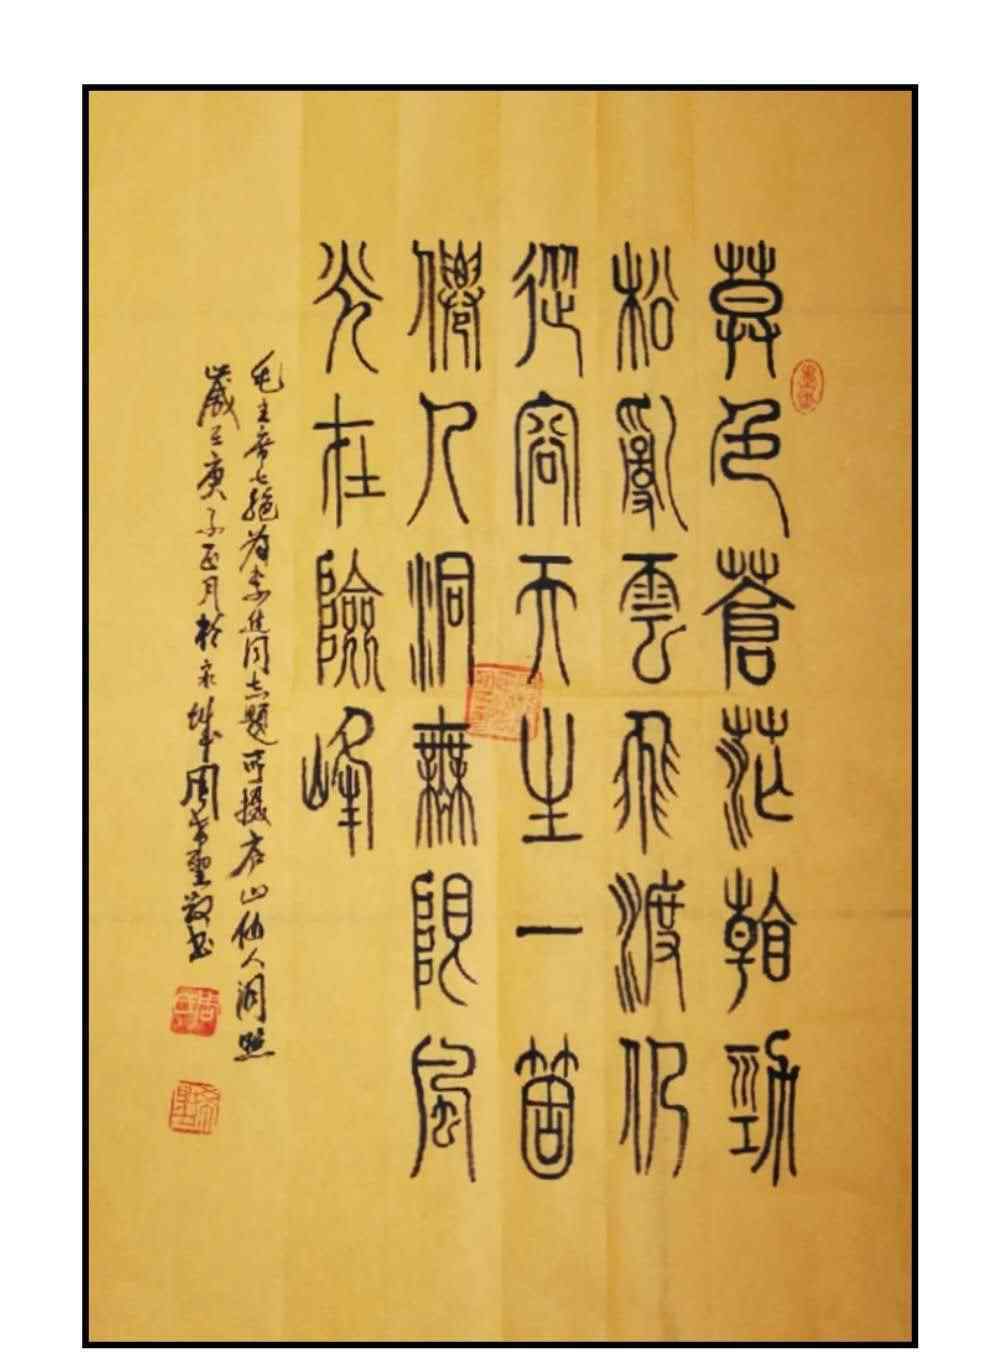 莫色蒼茫看勁
松亂雲飛渡仍
從容天生一箇
僊人洞無限風
光在險峰
毛主席七絕為李進同志題所攝庐山仙人洞照
歲在庚子正月於泉城周希聖敬書